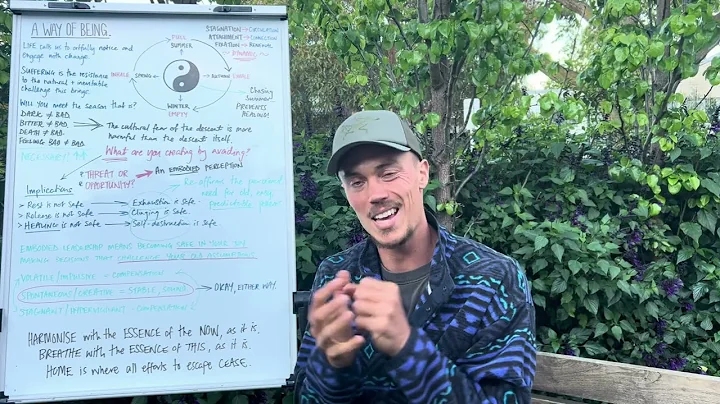 A WAY OF BEING.
LIFE calls us to artfully notice and
engage with change
SUFFERING is the resistance
to the natural + inevitable
challenge this brings.
Will you meet the season that is?
DARK ≠ BAD.
BITTER ≠ BAD.
DEATH ≠ BAD.
FEELING BAD ≠ BAD.
The cultural fear of the descent is more
harmful than the descent itself.
FULL
SUMMER
INHALE
SPRING
AUTUMN
EXHALE
WINTER
EMPTY
STAGNATION → CIRCULATION
ATTACHMENT → CONNECTION
FIXATION → RENEWAL
Chasing
Summer
PREVENTS
HEALING!
What are you creating by avoiding?
THREAT OR
OPPORTUNITY?
An EMBODIED PERCEPTION
Re-affirms the perceived
need for old, easy,
predictable power
Implications
> Rest is not safe → Exhaustion is safe.
> Release is not safe → Clinging is safe.
> HEALING is not safe → Self-destruction is safe
EMBODIED LEADERSHIP MEANS BECOMING SAFE IN YOUR BODY
MAKING DECISIONS THAT CHALLENGE YOUR OLD ASSUMPTIONS
VOLATILE/IMPULSIVE = COMPENSATION
SPONTANEOUS/CREATIVE = STABLE, SOUND
→ OKAY, EITHER WAY.
STAGNANT/HYPERVIGILANT = COMPENSATION
HARMONISE with the ESSENCE of the NOW, as it is.
BREATHE with the ESSENCE of THIS, as it is.
HOME is where all efforts to escape CEASE.